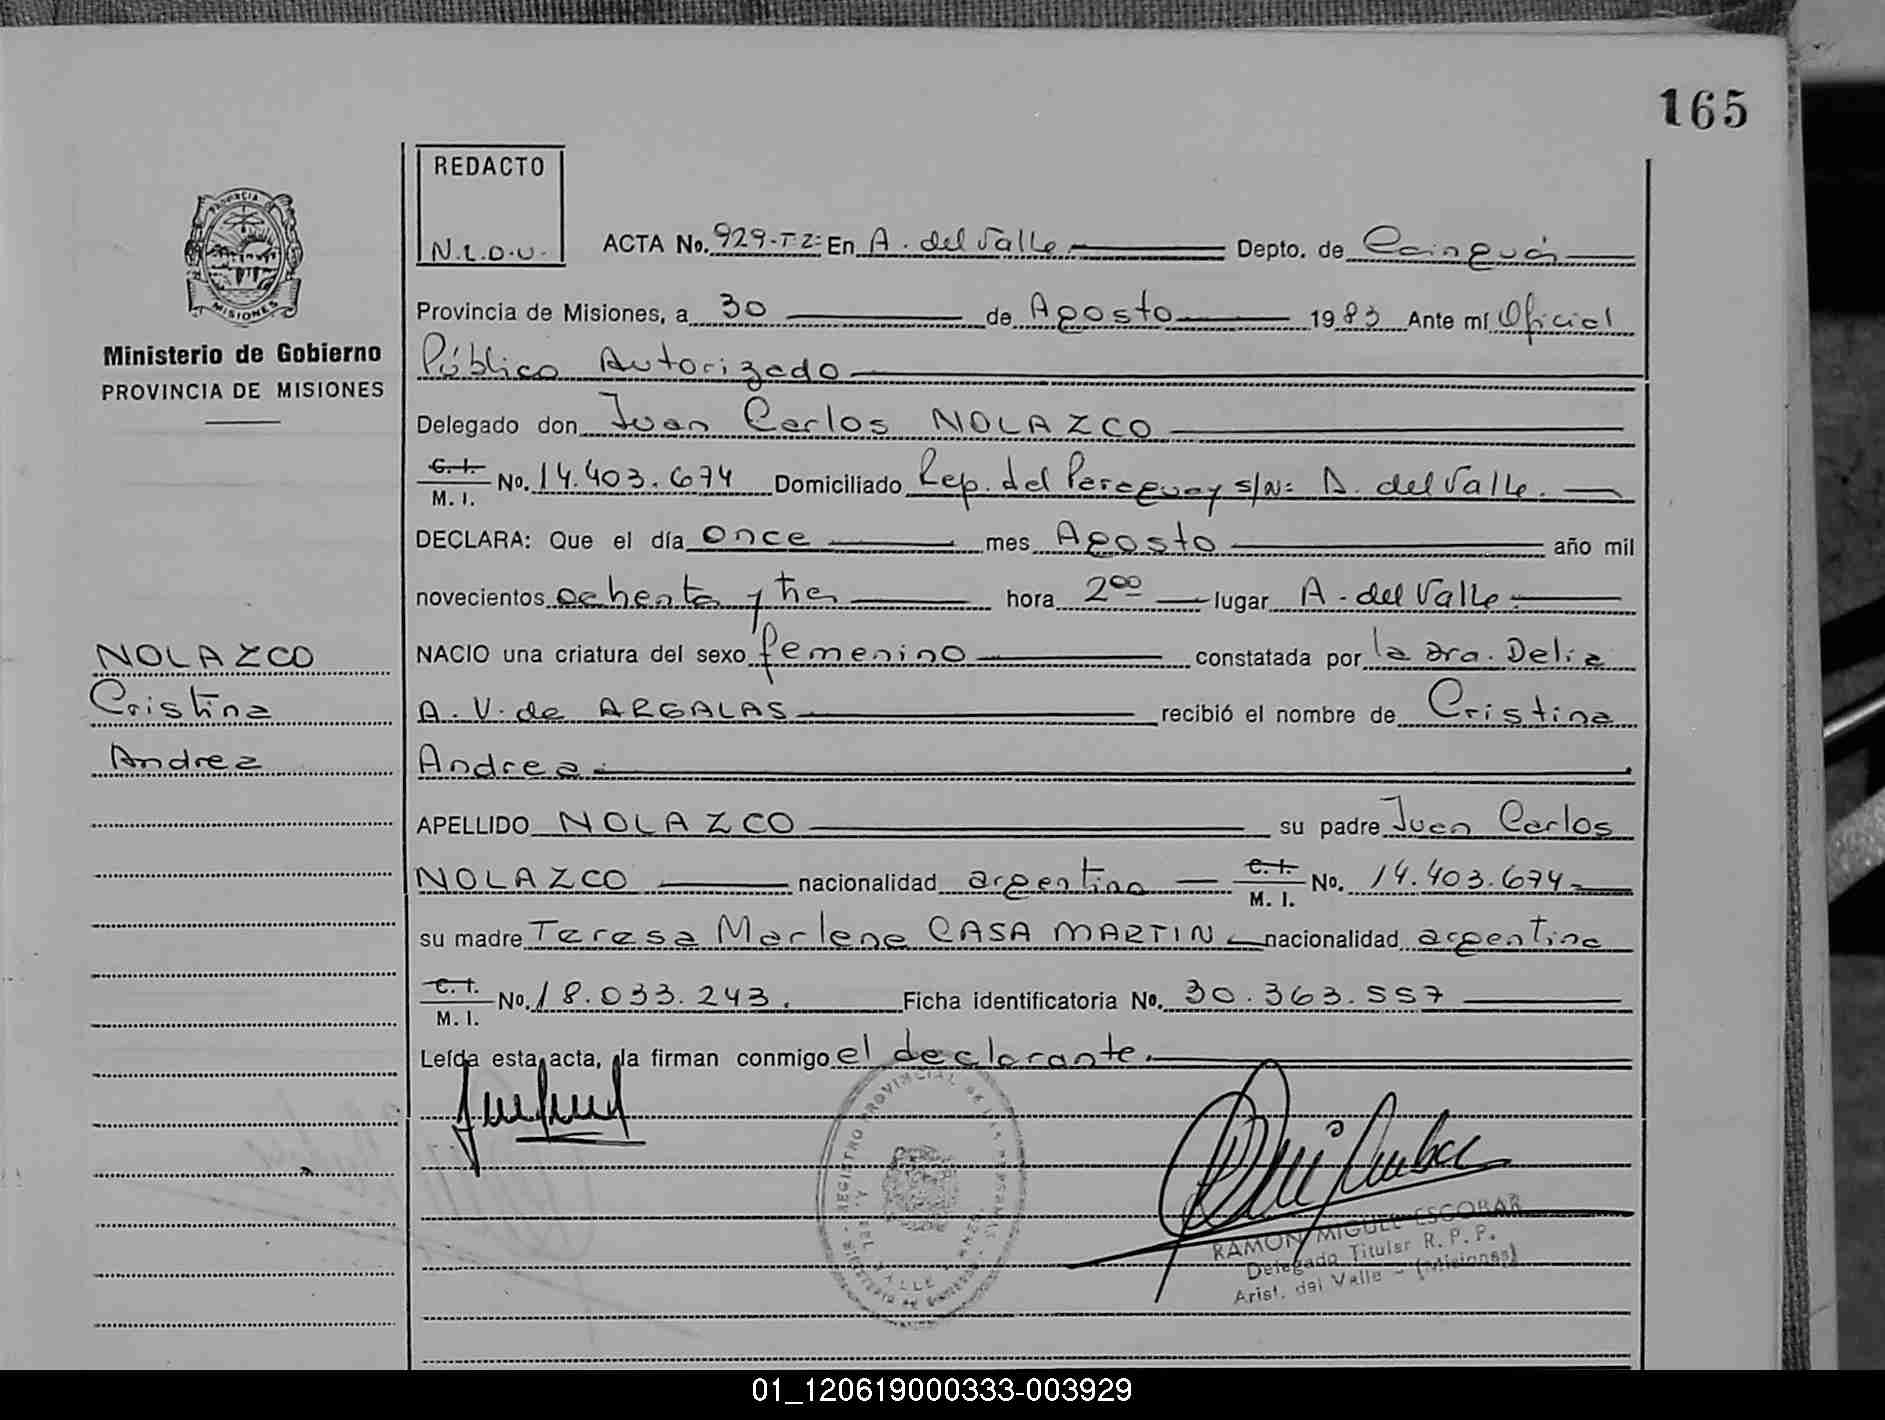 165
REDACTO
N.L.D.U.
ACTA No. 929-TZ= En A. del Valle Depto. de Cainguás
Provincia de Misiones, a 30 de Agosto 1983 Ante mí Oficial
Ministerio de Gobierno
PROVINCIA DE MISIONES
Público Autorizado
Delegado don Juan Carlos NOLAZCO
C. I. M. I. No. 14.403.674 Domiciliado Rep. del Paraguay s/n: A. del Valle.
DECLARA: Que el día once mes Agosto año mil
novecientos ochenta y tres hora 2°° lugar A. del Valle
NOLAZCO
NACIO una criatura del sexo femenino constatada por la Dra. Delia
Cristina
A. V. de ARGALAS recibió el nombre de Cristina
Andrea
Andrea.
APELLIDO NOLAZCO su padre Juan Carlos
NOLAZCO nacionalidad argentina C. I. M. I. No. 14.403.674
su madre Teresa Marlene CASA MARTIN nacionalidad argentina
C. I. M. I. No. 18.033.243. Ficha identificatoria No. 30.363.557
Leída esta acta, la firman conmigo el declarante.
REGISTRO PROVINCIAL DE LAS PERSONAS
A. DEL VALLE
RAMON MIGUEL ESCOBAR
Delegado Titular R. P. P.
Arist. del Valle - (Misiones)
01_120619000333-003929